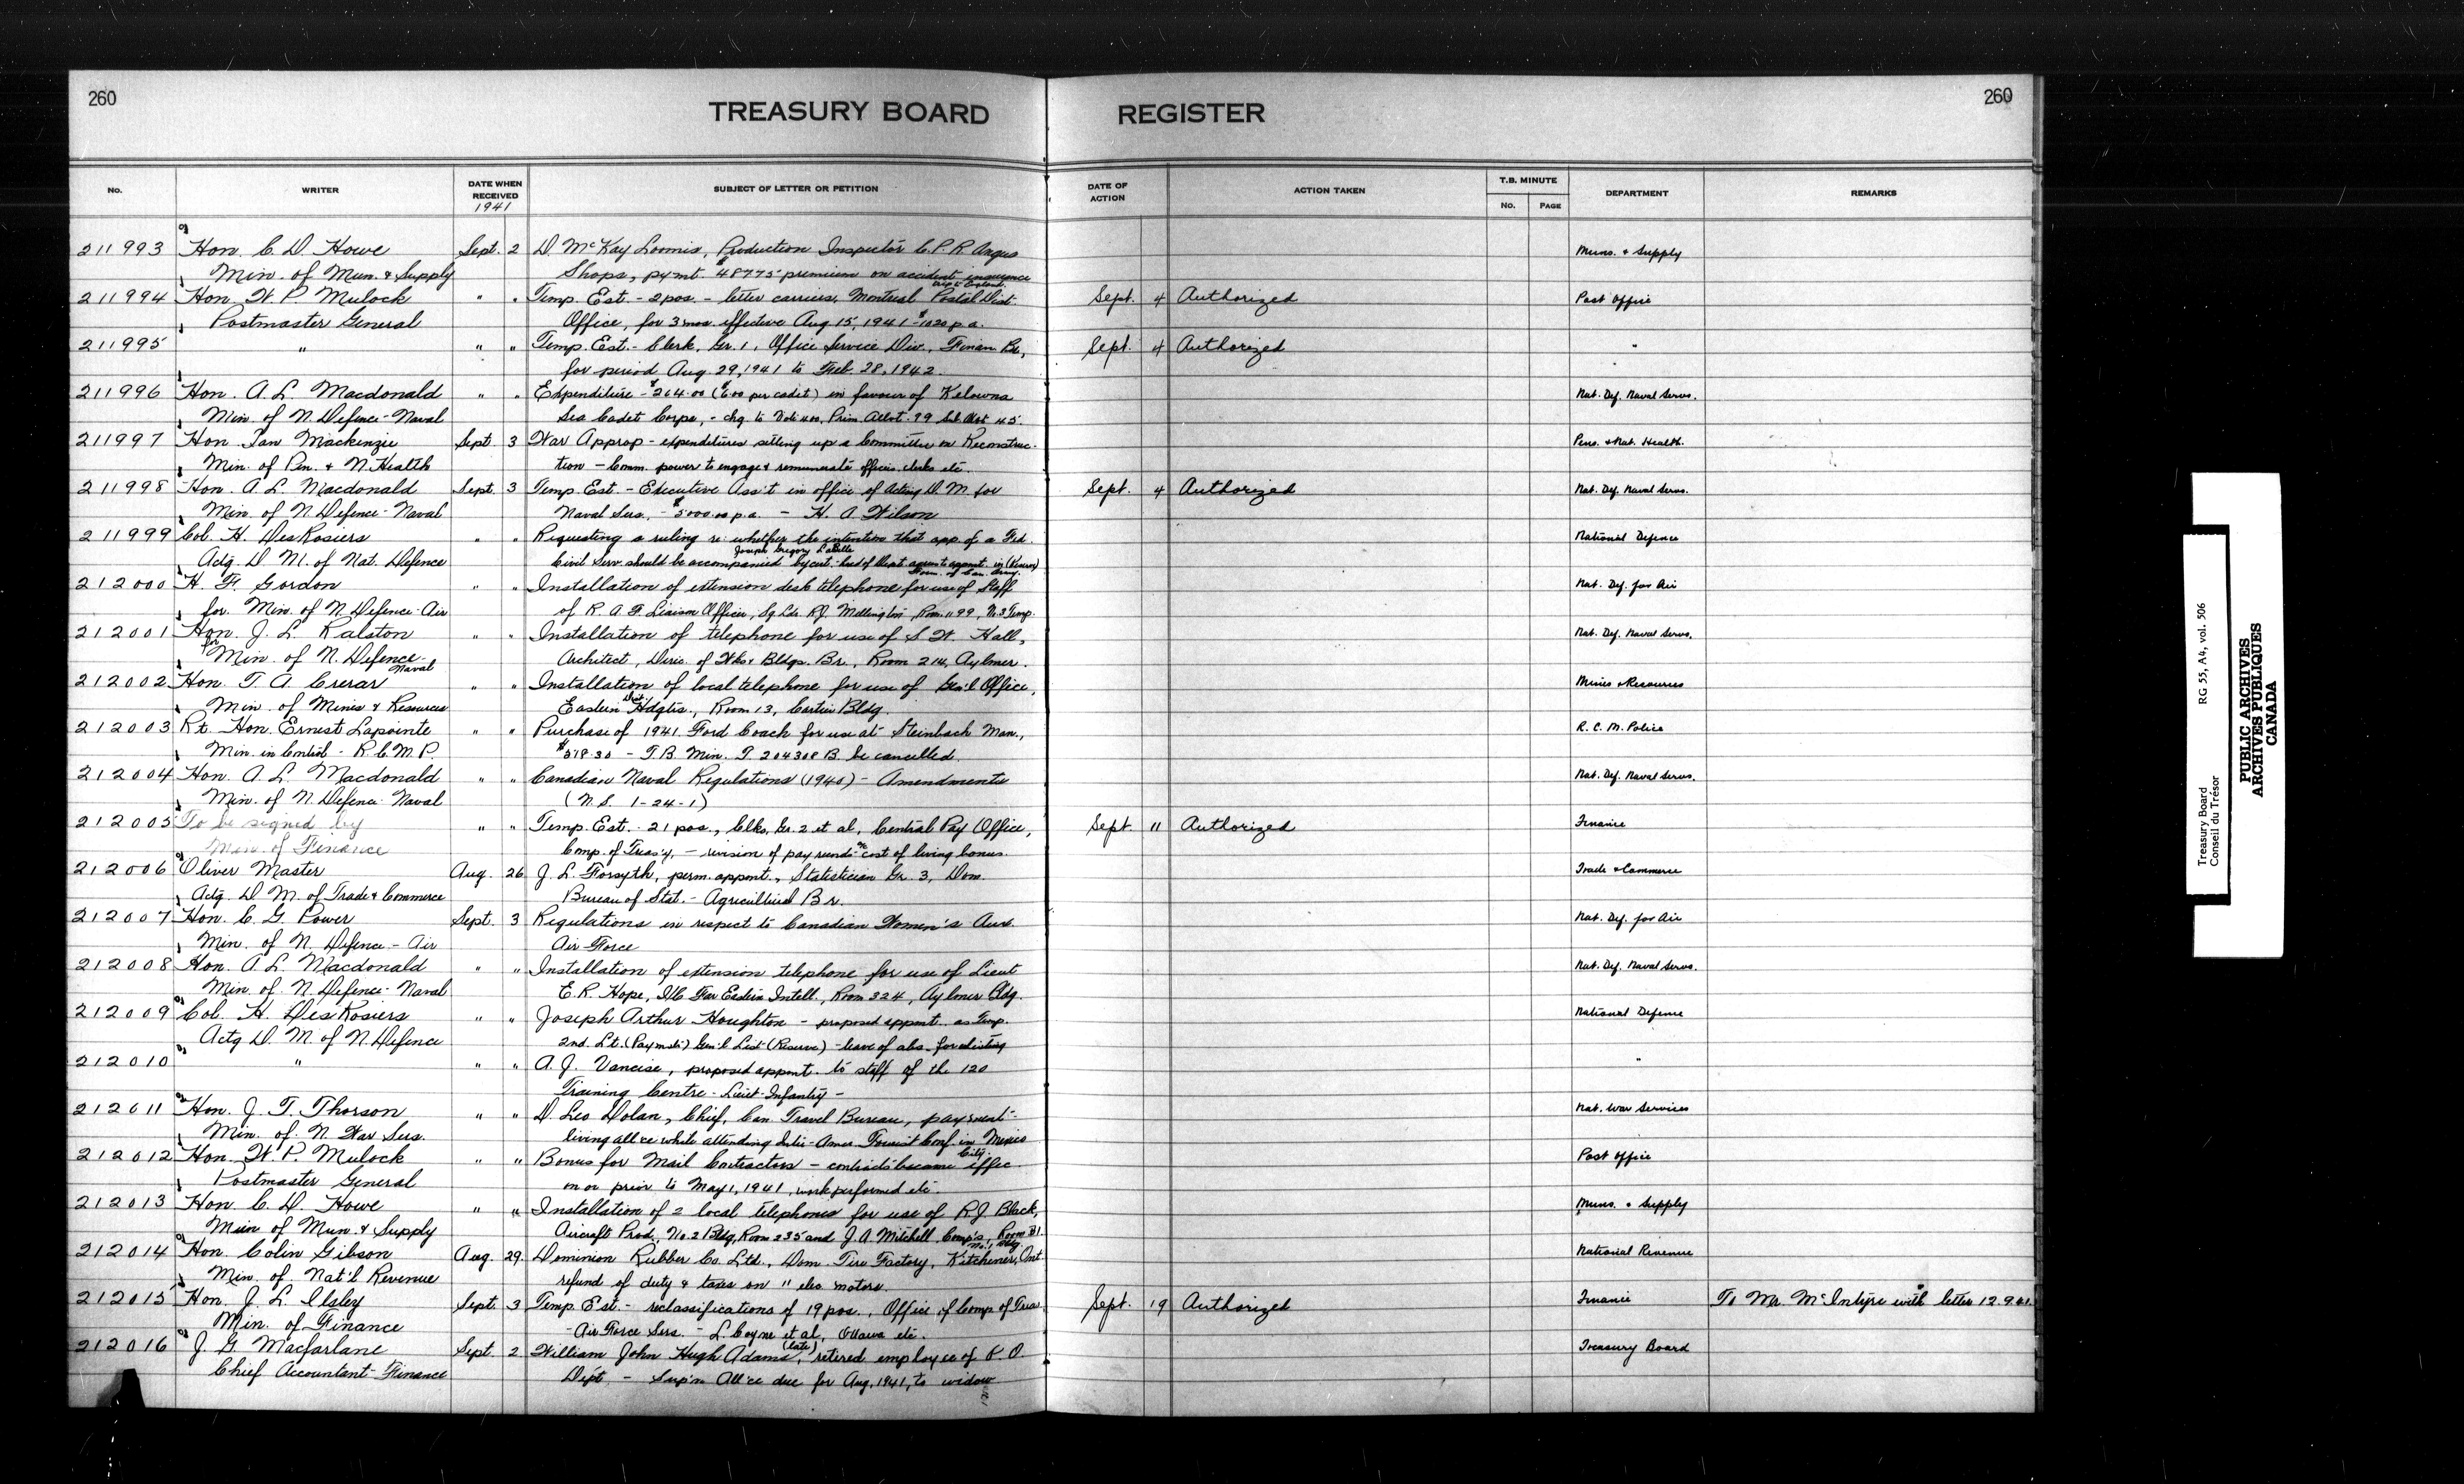 260
TREASURY BOARD REGISTER
260
No. WRITER DATE WHEN RECEIVED 1941 SUBJECT OF LETTER OR PETITION DATE OF ACTION ACTION TAKEN T.B. MINUTE No. PAGE DEPARTMENT REMARKS
211993 Hon. C. D. Howe Sept. 2 D. McKay Loomis, Production Inspector C.P.R. Angus Muns. & Supply
Min. of Mun. & Supply Shops, pymt. $487.75 premium on accident insurance
211994 Hon. W. P. Mulock " " Temp. Est. - 2 pos. - letter carriers, Montreal Postal Dist. Sept. 4 Authorized Post Office
Postmaster General Office, for 3 mos. effective Aug 15, 1941 - $1020 p.a.
211995 " " " Temp. Est. - Clerk, Gr. 1, Office Service Div., Finan Br., Sept. 4 Authorized "
for period Aug. 29, 1941 to Feb. 28, 1942.
211996 Hon. A. L. Macdonald " " Expenditure - $264.00 ($6.00 per cadet) in favour of Kelowna Nat. Def. Naval Servs.
Min. of N. Defence - Naval Sea Cadet Corps, - chg. to Vote 400, Prim. Allot. 99 Sub Allot 45.
211997 Hon. Ian Mackenzie Sept. 3 War Approp - expenditures setting up a Committee on Reconstruc- Pens. & Nat. Health.
Min. of Pen. & N. Health tion - Comm. power to engage & remunerate officers, clerks etc.
211998 Hon. A. L. Macdonald Sept. 3 Temp. Est - Executive Ass't in office of Acting D. M. for Sept. 4 Authorized Nat. Def. Naval Servs.
Min. of N. Defence - Naval Naval Sers. - $5000.00 p.a. - H. A. Wilson
211999 Col. H. DesRosiers " " Requesting a ruling re: whether the intention that app. of a Fed. National Defence
Joseph Gregory LaBelle
Actg. D. M. of Nat. Defence Civil Serv. should be accompanied by cert. head of Dept. agrees to appmt. in (Reserve)
Form. of Can. Army.
212000 H. F. Gordon " " Installation of extension desk telephone for use of Staff Nat. Def. for Air
for Min. of N. Defence - Air of R. A. F. Liaison Officer, Sq. Ldr. R.J. Mellington, Room 1199, No. 3 Temp.
212001 Hon. J. L. Ralston " " Installation of telephone for use of S. W. Hall, Nat. Def. Naval Servs.
for Min. of N. Defence - Naval Architect, Direc. of Wks & Bldgs. Br., Room 214, Aylmer.
212002 Hon. T. A. Crerar " " Installation of local telephone for use of Gen'l Office, Mines & Resources
Min. of Mines & Resources Eastern Dist. Hdqtrs., Room 13, Cartier Bldg.
212003 Rt. Hon. Ernest Lapointe " " Purchase of 1941 Ford Coach for use at Steinbach Man., R. C. M. Police
Min. in Control - R.C.M.P. $518.30 - T. B. Min. T 204308 B. be cancelled.
212004 Hon. A. L. Macdonald " " Canadian Naval Regulations (1940) - Amendments Nat. Def. Naval Servs.
Min. of N. Defence Naval (N. S. 1-24-1)
212005 To be signed by " " Temp. Est. - 21 pos., Clks, Gr. 2 et al, Central Pay Office, Sept. 11 Authorized Finance
Min. of Finance Comp. of Treas'y, - revision of pay cost of living bonus.
212006 Oliver Master Aug. 26 J. L. Forsyth, perm. appmt., Statistician Gr. 3, Dom. Trade & Commerce
Actg. D. M. of Trade & Commerce Bureau of Stat. - Agricultural Br.
212007 Hon. C. G. Power Sept. 3 Regulations in respect to Canadian Women's Aux. Nat. Def. for Air
Min. of N. Defence - Air Air Force
212008 Hon. A. L. Macdonald " " Installation of extension telephone for use of Lieut Nat. Def. Naval Servs.
Min. of N. Defence - Naval E. R. Hope, I/C Far Eastern Intell., Room 324, Aylmer Bldg.
212009 Col. H. DesRosiers " " Joseph Arthur Houghton - proposed appmt. as Temp. National Defence
Actg D. M. of N. Defence 2nd. Lt. (Paymstr) Gen'l List (Reserve) - leave of abs. for
212010 " " " A. J. Vancise, proposed appmt. to staff of the 120 "
Training Centre - Lieut. Infantry -
212011 Hon. J. T. Thorson " " D. Leo Dolan, Chief, Can. Travel Bureau, payment - Nat. War Services
Min. of N. War Sers. living all'ce while attending Inter-Amer. Tourist Conf. in Mexico City.
212012 Hon. W. P. Mulock " " Bonus for Mail Contractors - contracts became effec. Post Office
Postmaster General on or prior to May 1, 1941, work performed etc.
212013 Hon. C. D. Howe " " Installation of 2 local telephones for use of R.J. Black, Muns. & Supply
Min of Mun. & Supply Aircraft Prod., No. 2 Bldg, Room 235 and J. A. Mitchell Comp's, Room B1. No. 1 Bldg.
212014 Hon. Colin Gibson Aug. 29. Dominion Rubber Co. Ltd., Dom. Tire Factory, Kitchener, Ont. National Revenue
Min. of Nat'l Revenue refund of duty & taxes on 11 elec. motors.
212015 Hon. J. L. Ilsley Sept. 3 Temp. Est. - reclassifications of 19 pos., Office of Comp. of Treas. Sept. 19 Authorized Finance To Mr. McIntyre with letter 12.9.41.
Min. of Finance - Air Force Sers. - L. Coyne et al, Ottawa etc.
212016 J. G. Macfarlane Sept. 2 William John Hugh Adams (late), retired employee of P. O. Treasury Board
Chief Accountant - Finance Dept - Sup'n All'ce due for Aug. 1941, to widow
Treasury Board RG 55, A4, vol. 506
Conseil du Trésor
PUBLIC ARCHIVES
ARCHIVES PUBLIQUES
CANADA